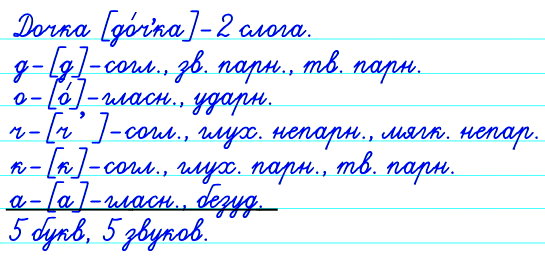 Дочка [до́ч’ка]–2 слога.
д–[д]–согл., зв. парн., тв. парн.
о–[о́]–гласн., ударн.
ч–[ч’]–согл., глух. непарн., мягк. непар.
к–[к]–согл., глух. парн., тв. парн.
а–[а]–гласн., безуд.
5 букв, 5 звуков.